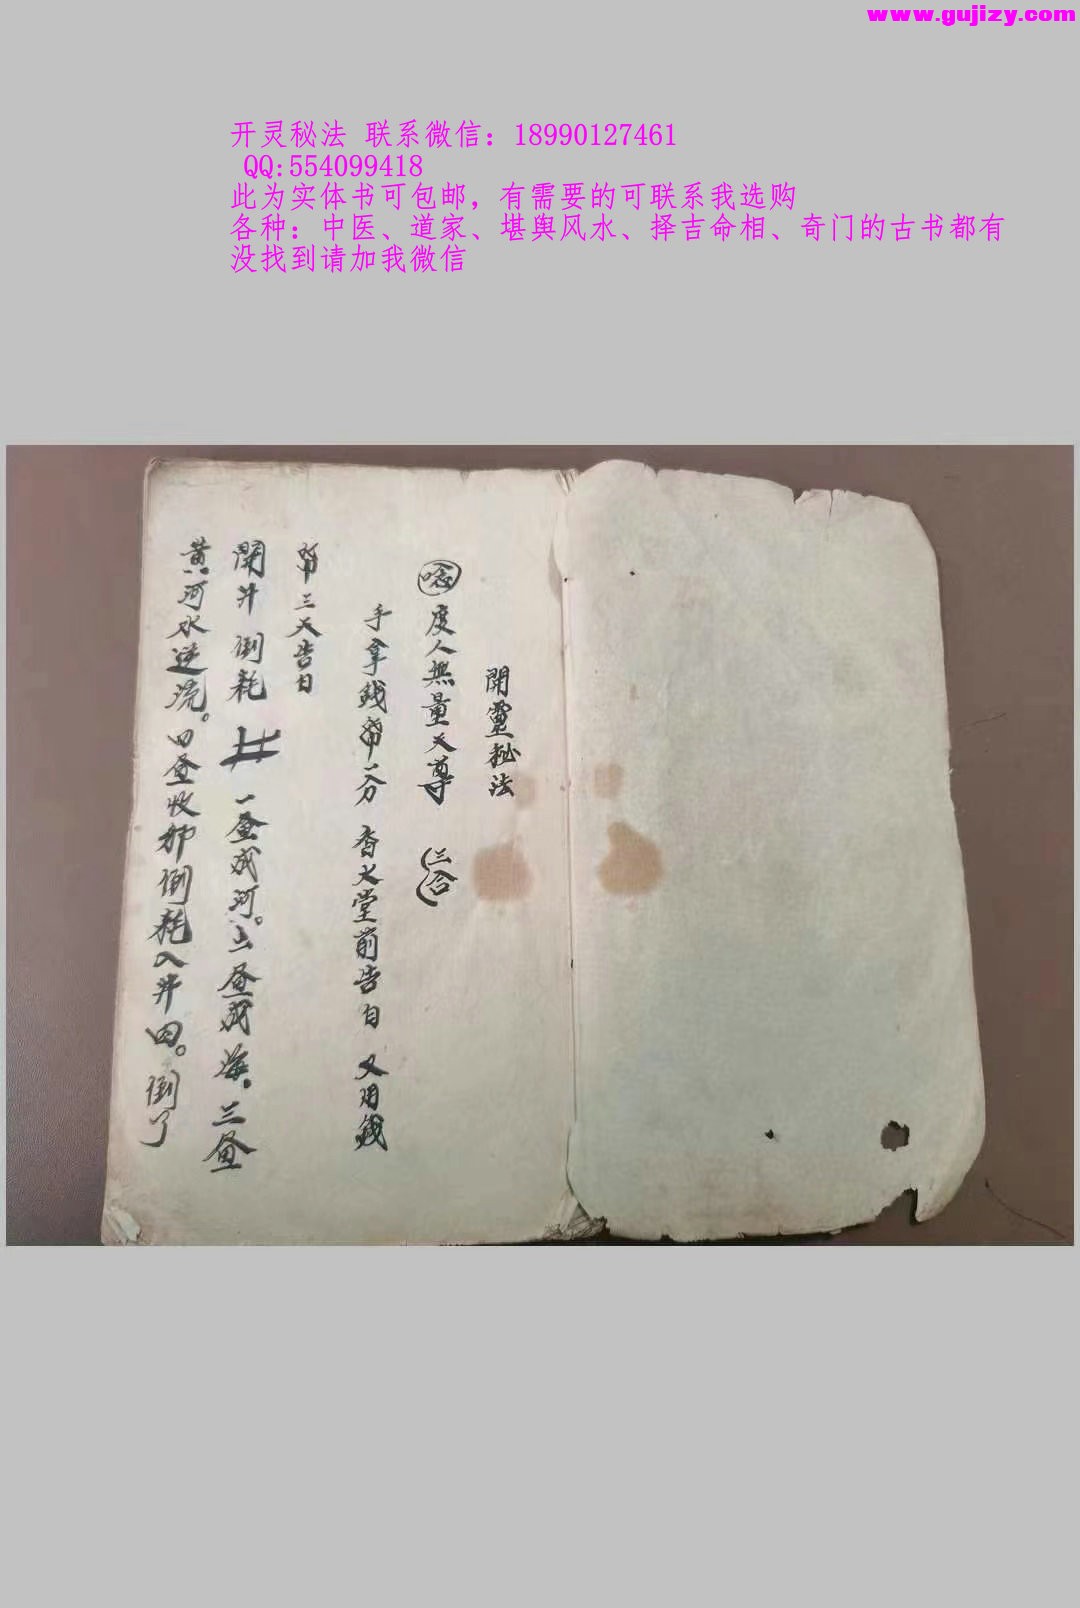 www.gujizy.com
开灵秘法 联系微信：18990127461
QQ:554099418
此为实体书可包邮，有需要的可联系我选购
各种：中医、道家、堪舆风水、择吉命相、奇门的古书都有
没找到请加我微信
開靈秘法
唸 度人無量天尊 三合
手拿錢帛一分 香火堂前告白 又用錢
帛三天告白
開井 倒耗 井 一畫成河。二畫成海。三畫
黄河水逆流。四畫收邪倒耗入井内。倒了